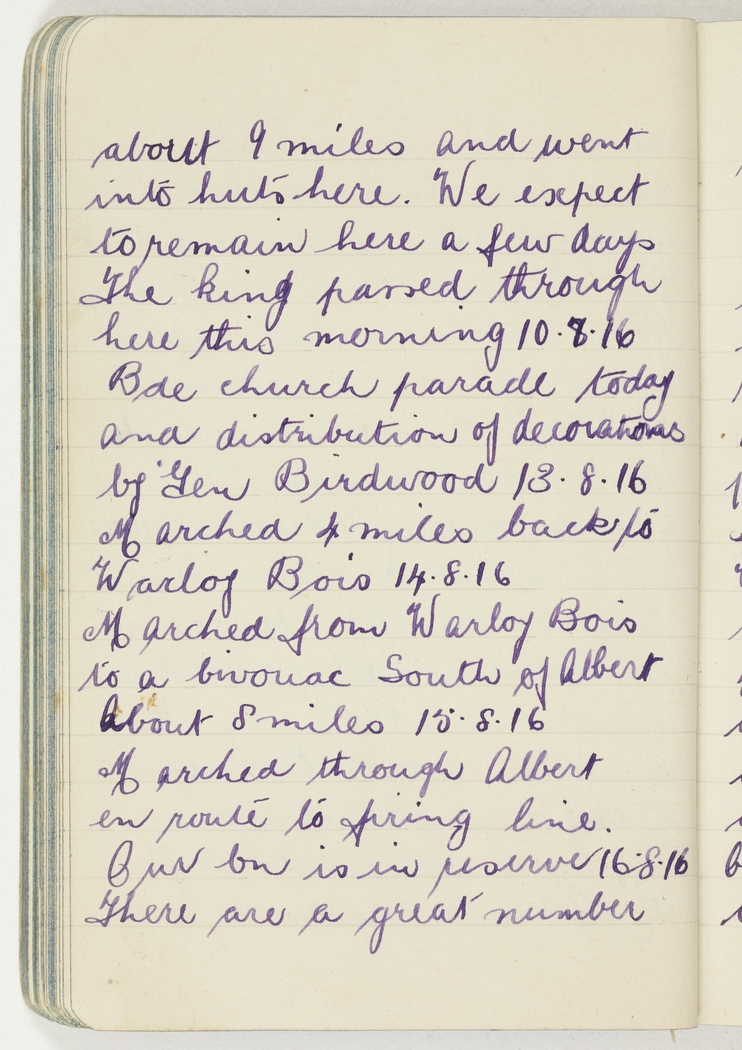 about 9 miles and went
into huts here. We expect
to remain here a few days
The king passed through
here this morning 10.8.16
Bde church parade today
and distribution of decorations
by Gen Birdwood 13.8.16
Marched 4 miles back to
Warloy Bois 14.8.16
Marched from Warloy Bois
to a bivouac South of Albert
About 8 miles 15.8.16
Marched through Albert
en route to firing line.
Our bn is in reserve 16.8.16
There are a great number